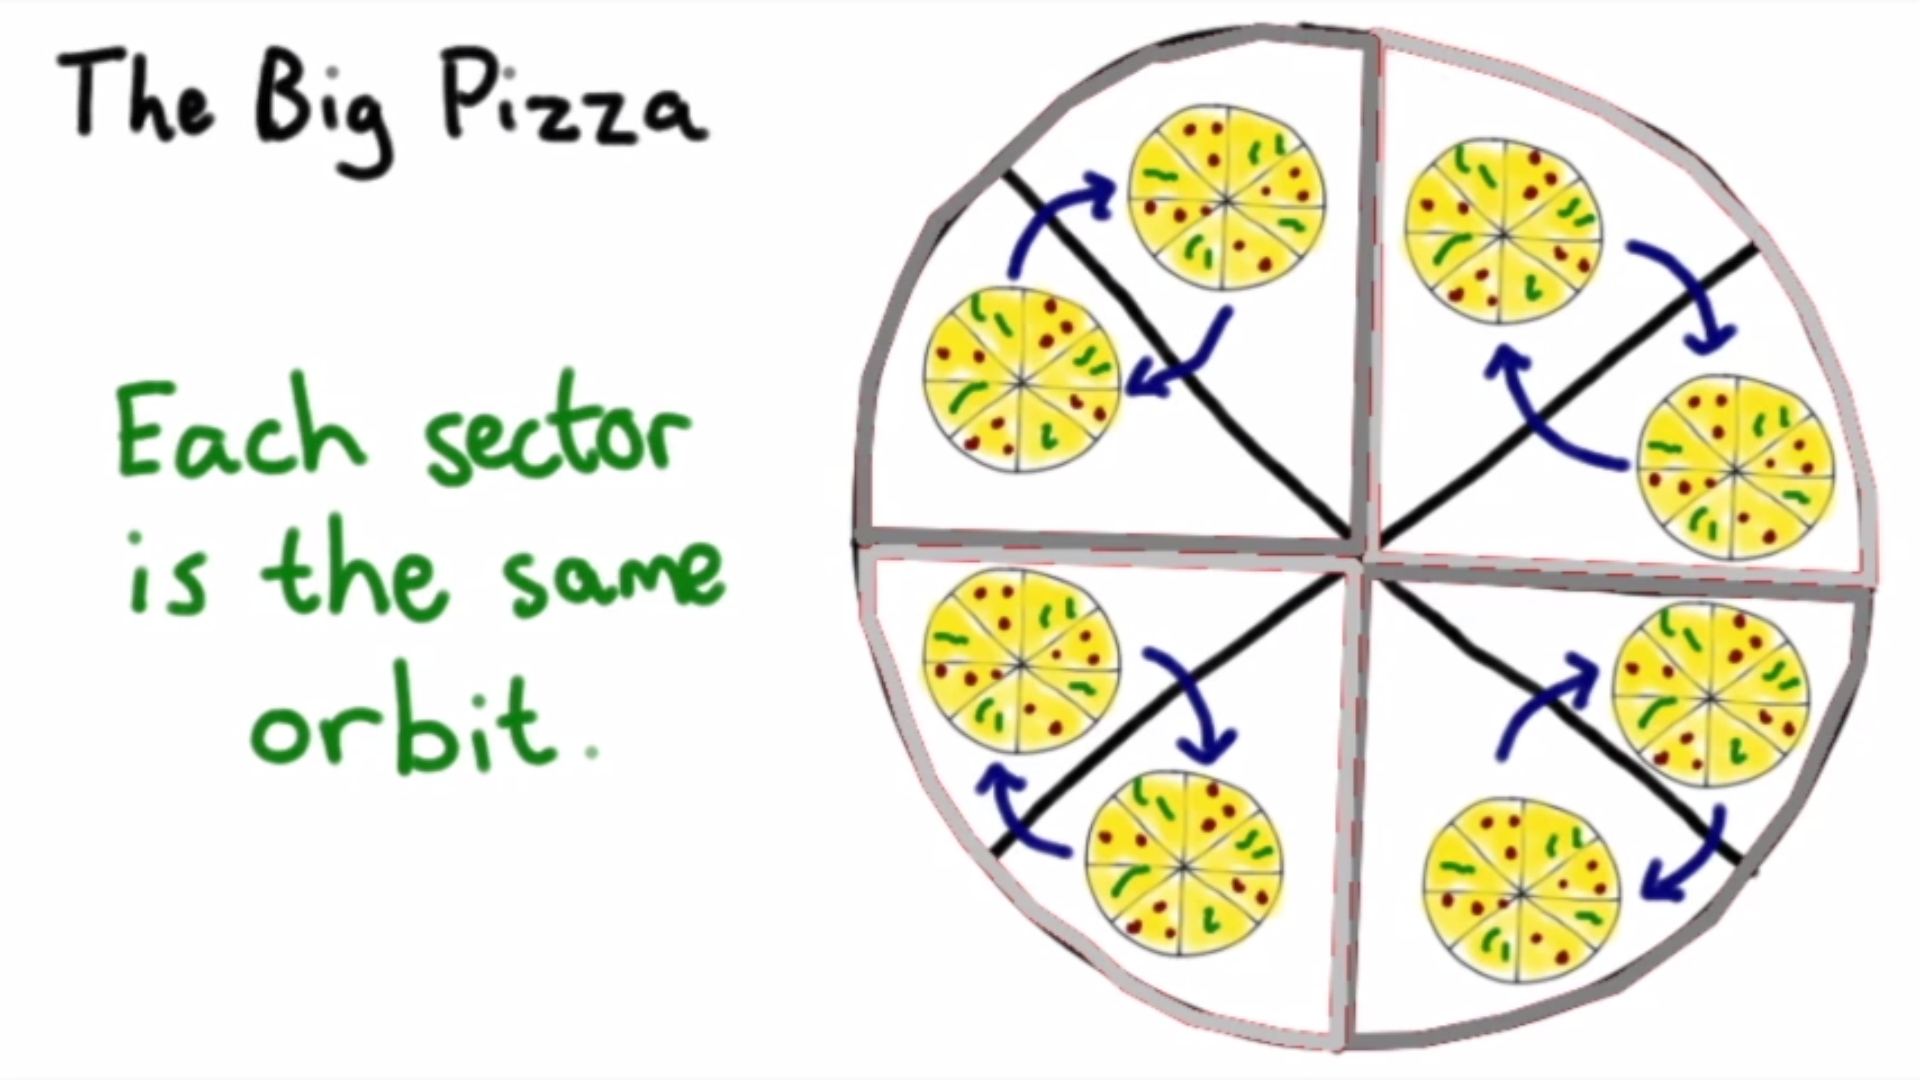 The Big Pizza
Each sector
is the same
orbit.